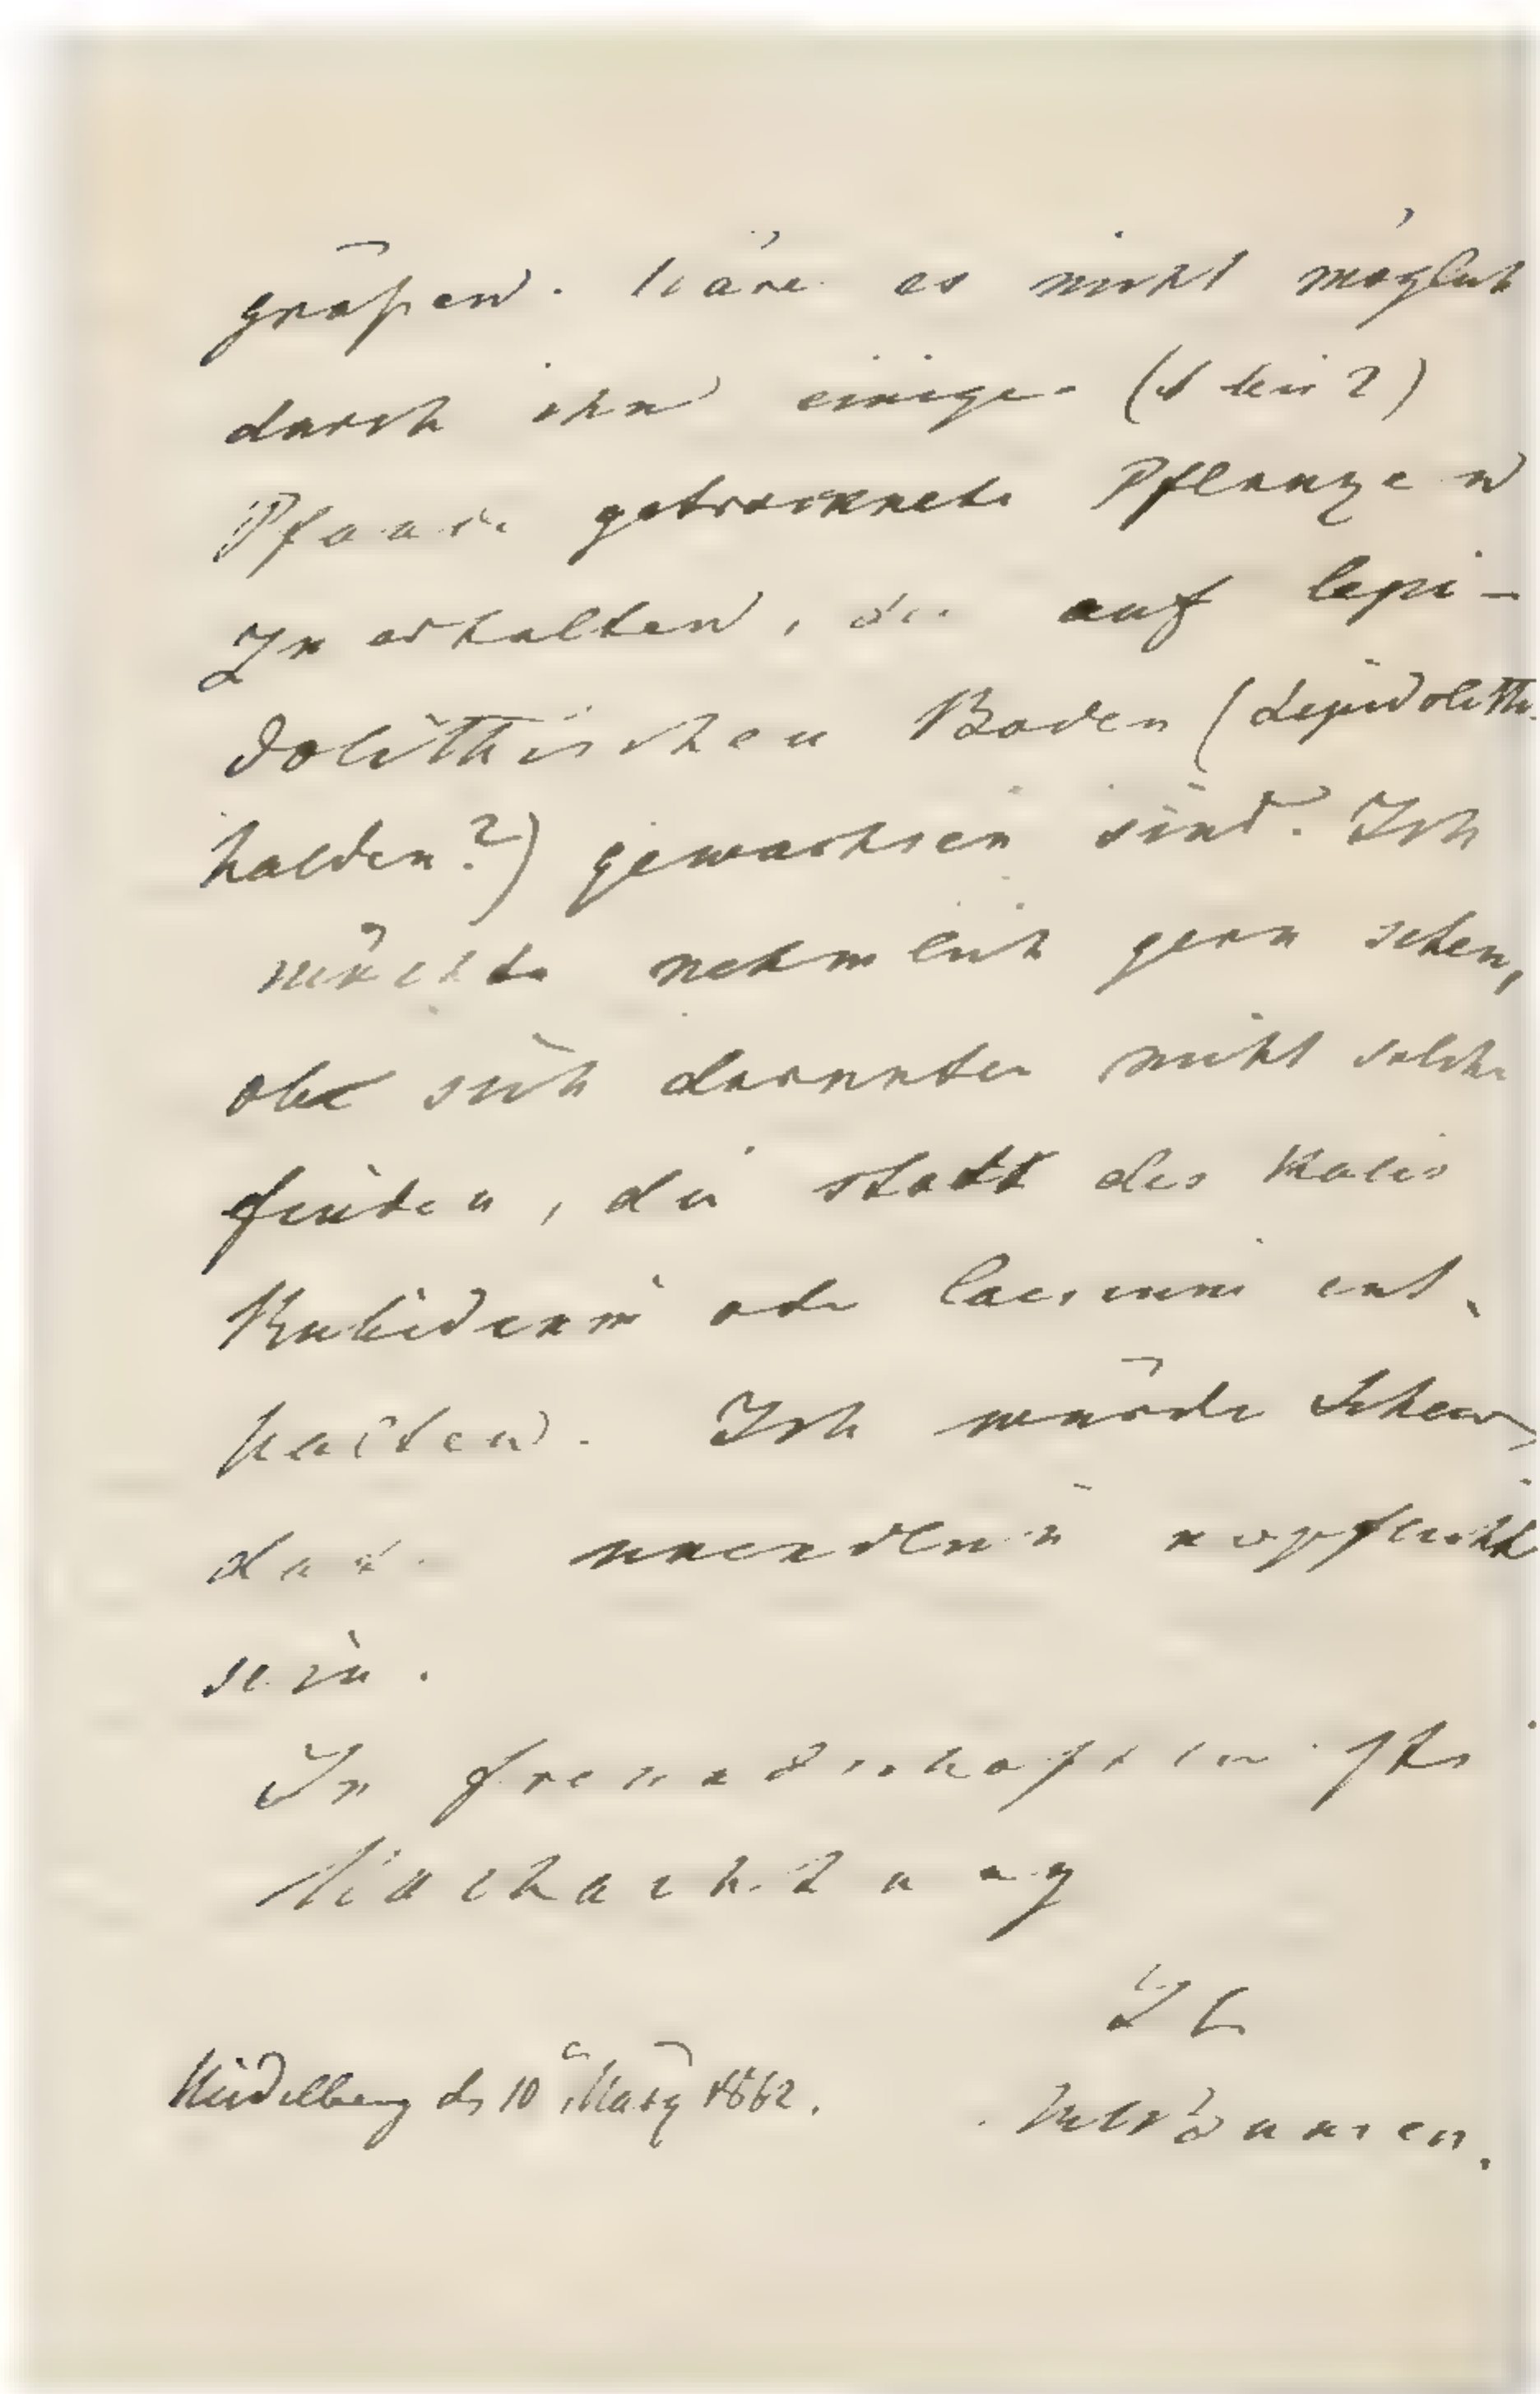 größen. Wäre es nicht möglich
durch ihn einige (1 bis 2)
Pfund getrocknete Pflanzen
zu erhalten, die auf lepi-
dolithischen Boden (Lepidolith-
halden?) gewachsen sind. Ich
möchte nehmlich gern sehen,
ob sich darunter nicht solche
finden, die statt des Kalis
Rubidium oder Caesium ent-
halten. Ich würde Ihnen
dafür unendlich verpflichtet
sein.
In freundschaftlichster
Hochachtung
Ihr
RWBunsen.
Heidelberg d. 10 März 1862.